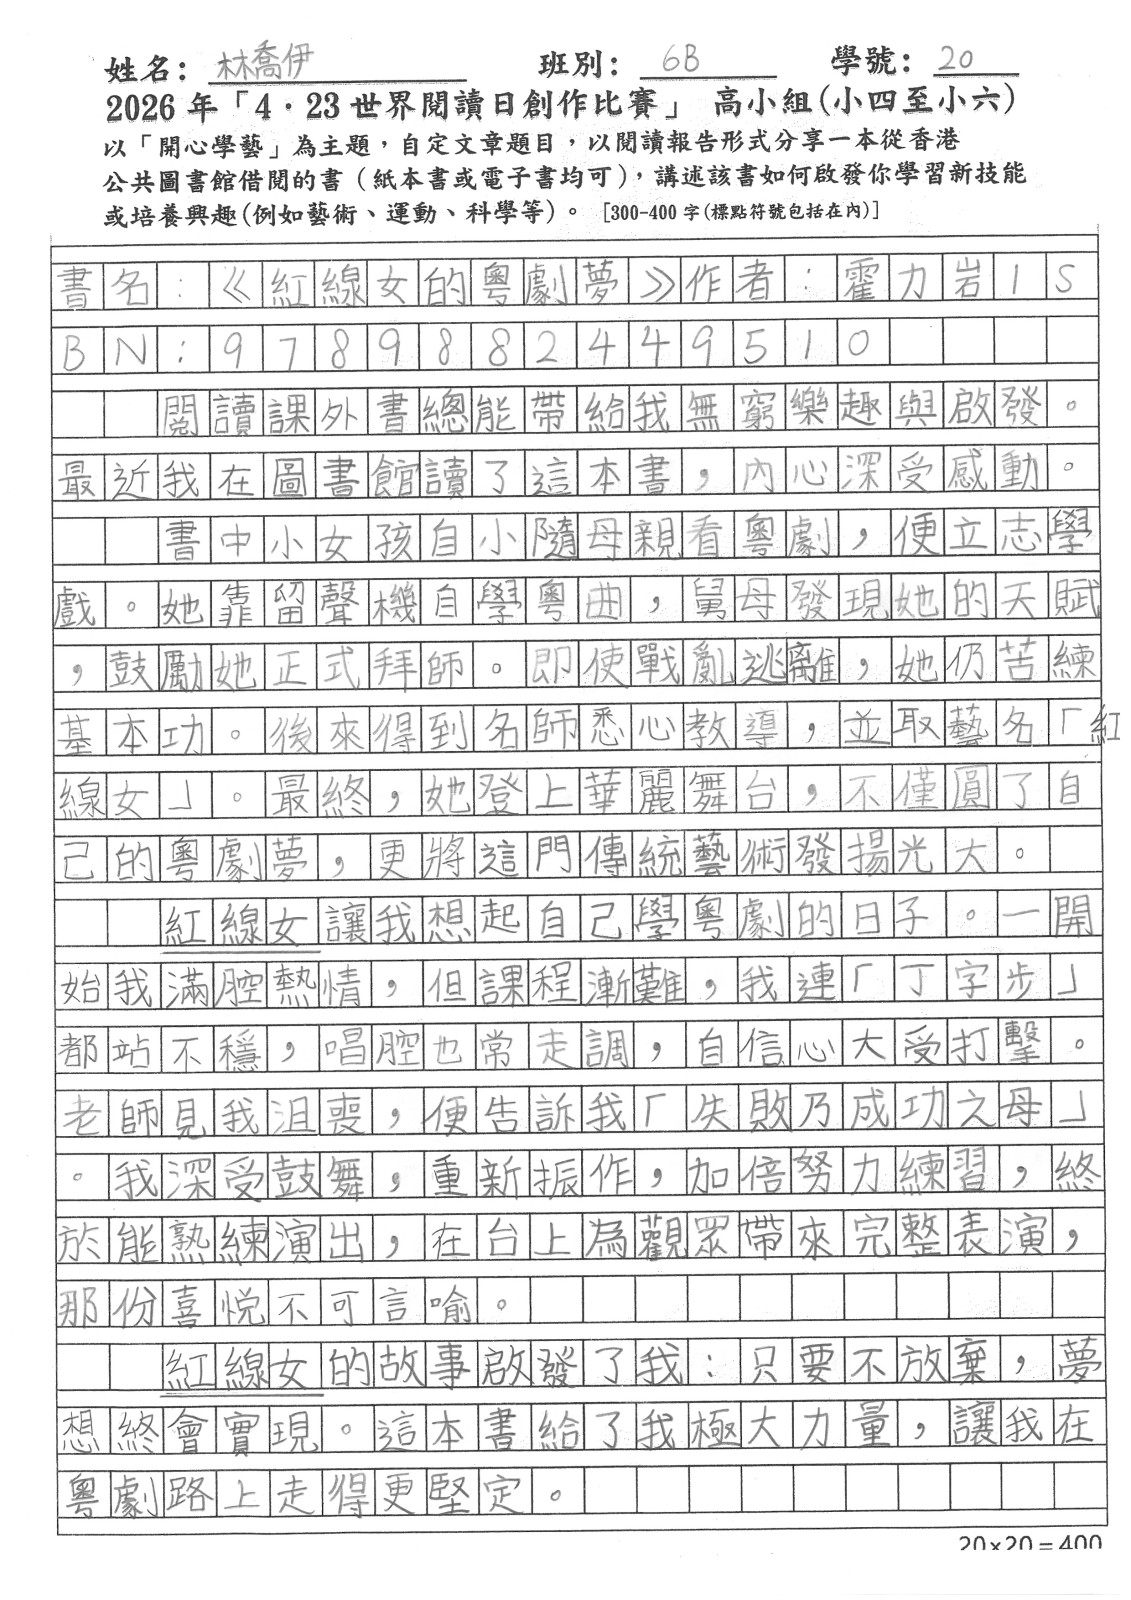 姓名：林喬伊 班別：6B 學號：20
2026 年「4．23 世界閱讀日創作比賽」 高小組(小四至小六)
以「開心學藝」為主題，自定文章題目，以閱讀報告形式分享一本從香港
公共圖書館借閱的書（紙本書或電子書均可），講述該書如何啟發你學習新技能
或培養興趣(例如藝術、運動、科學等)。 [300-400 字(標點符號包括在內)]
書名：《紅線女的粵劇夢》作者：霍力岩IS
BN：9789888244 9510
閱讀課外書總能帶給我無窮樂趣與啟發。
最近我在圖書館讀了這本書，內心深受感動。
書中小女孩自小隨母親看粵劇，便立志學
戲。她靠留聲機自學粵曲，舅母發現她的天賦
，鼓勵她正式拜師。即使戰亂逃離，她仍苦練
基本功。後來得到名師悉心教導，並取藝名「紅
線女」。最終，她登上華麗舞台，不僅圓了自
己的粵劇夢，更將這門傳統藝術發揚光大。
紅線女讓我想起自己學粵劇的日子。一開
始我滿腔熱情，但課程漸難，我連「丁字步」
都站不穩，唱腔也常走調，自信心大受打擊。
老師見我沮喪，便告訴我「失敗乃成功之母」
。我深受鼓舞，重新振作，加倍努力練習，終
於能熟練演出，在台上為觀眾帶來完整表演，
那份喜悅不可言喻。
紅線女的故事啟發了我：只要不放棄，夢
想終會實現。這本書給了我極大力量，讓我在
粵劇路上走得更堅定。
20×20＝400